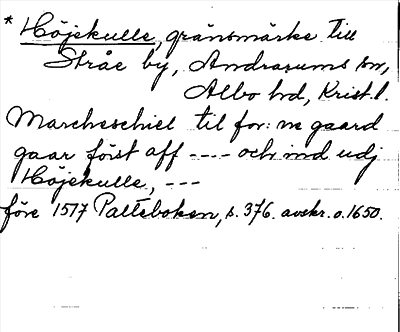 * Höjekulle, gränsmärke till
Stråe by, Andrarums sn,
Albo hd, Krist. l.
Marcheschiel til for: ne gaard
gaar först aff ---- och ind udj
Höjekulle, ---
före 1517 Palteboken, s. 376. avskr. o. 1650.